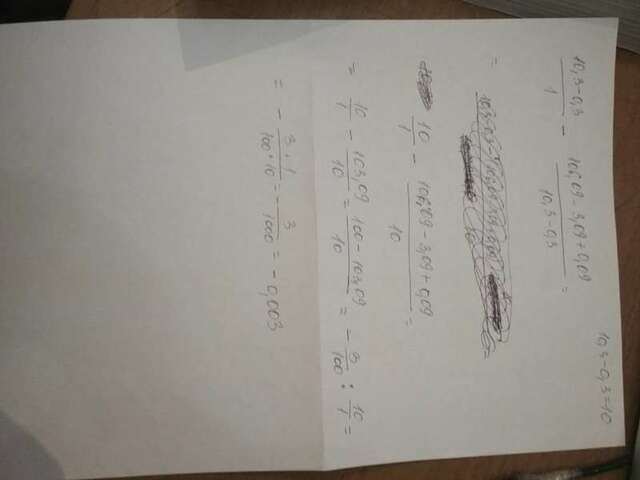 10,3-0,3=10
10,3-0,3/1 - 106,09-3,09+0,09/10,3-0,3 =
=
10/1 - 106,09-3,09+0,09/10 =
= 10/1 - 103,09/10 = 100-103,09/10 = - 3/100 : 10/1 =
= - 3·1/100·10 = - 3/1000 = - 0,003